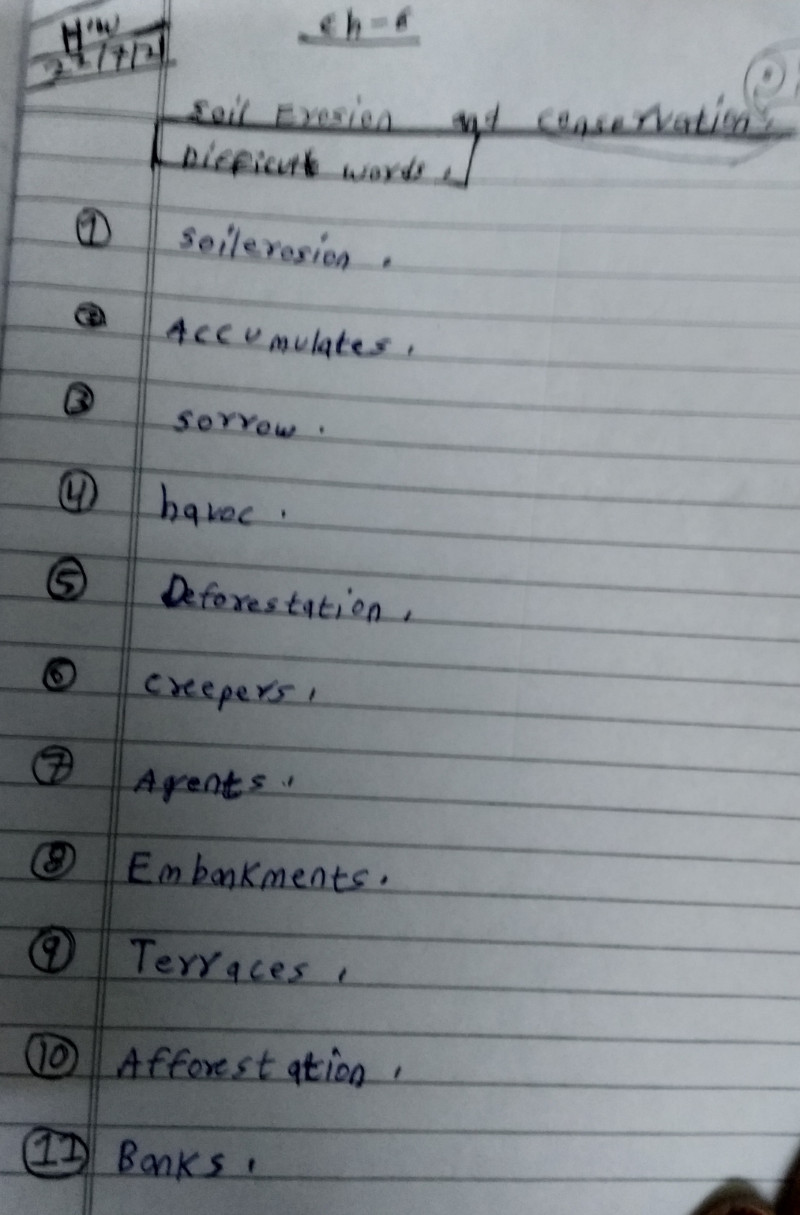 H.W
ch-6
Soil Erosion and conservation.
Difficult words.
① soilerosion.
② Accumulates.
③ sorrow.
④ havoc.
⑤ Deforestation.
⑥ creepers.
⑦ Agents.
⑧ Embankments.
⑨ Terraces.
⑩ Afforestation.
⑪ Banks.